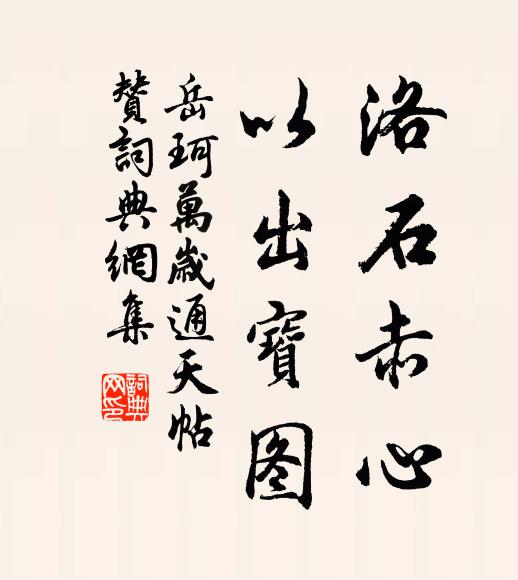 洛石赤心
以出寶图
岳珂萬歲通天帖
贊詞典網集
詞典
网印